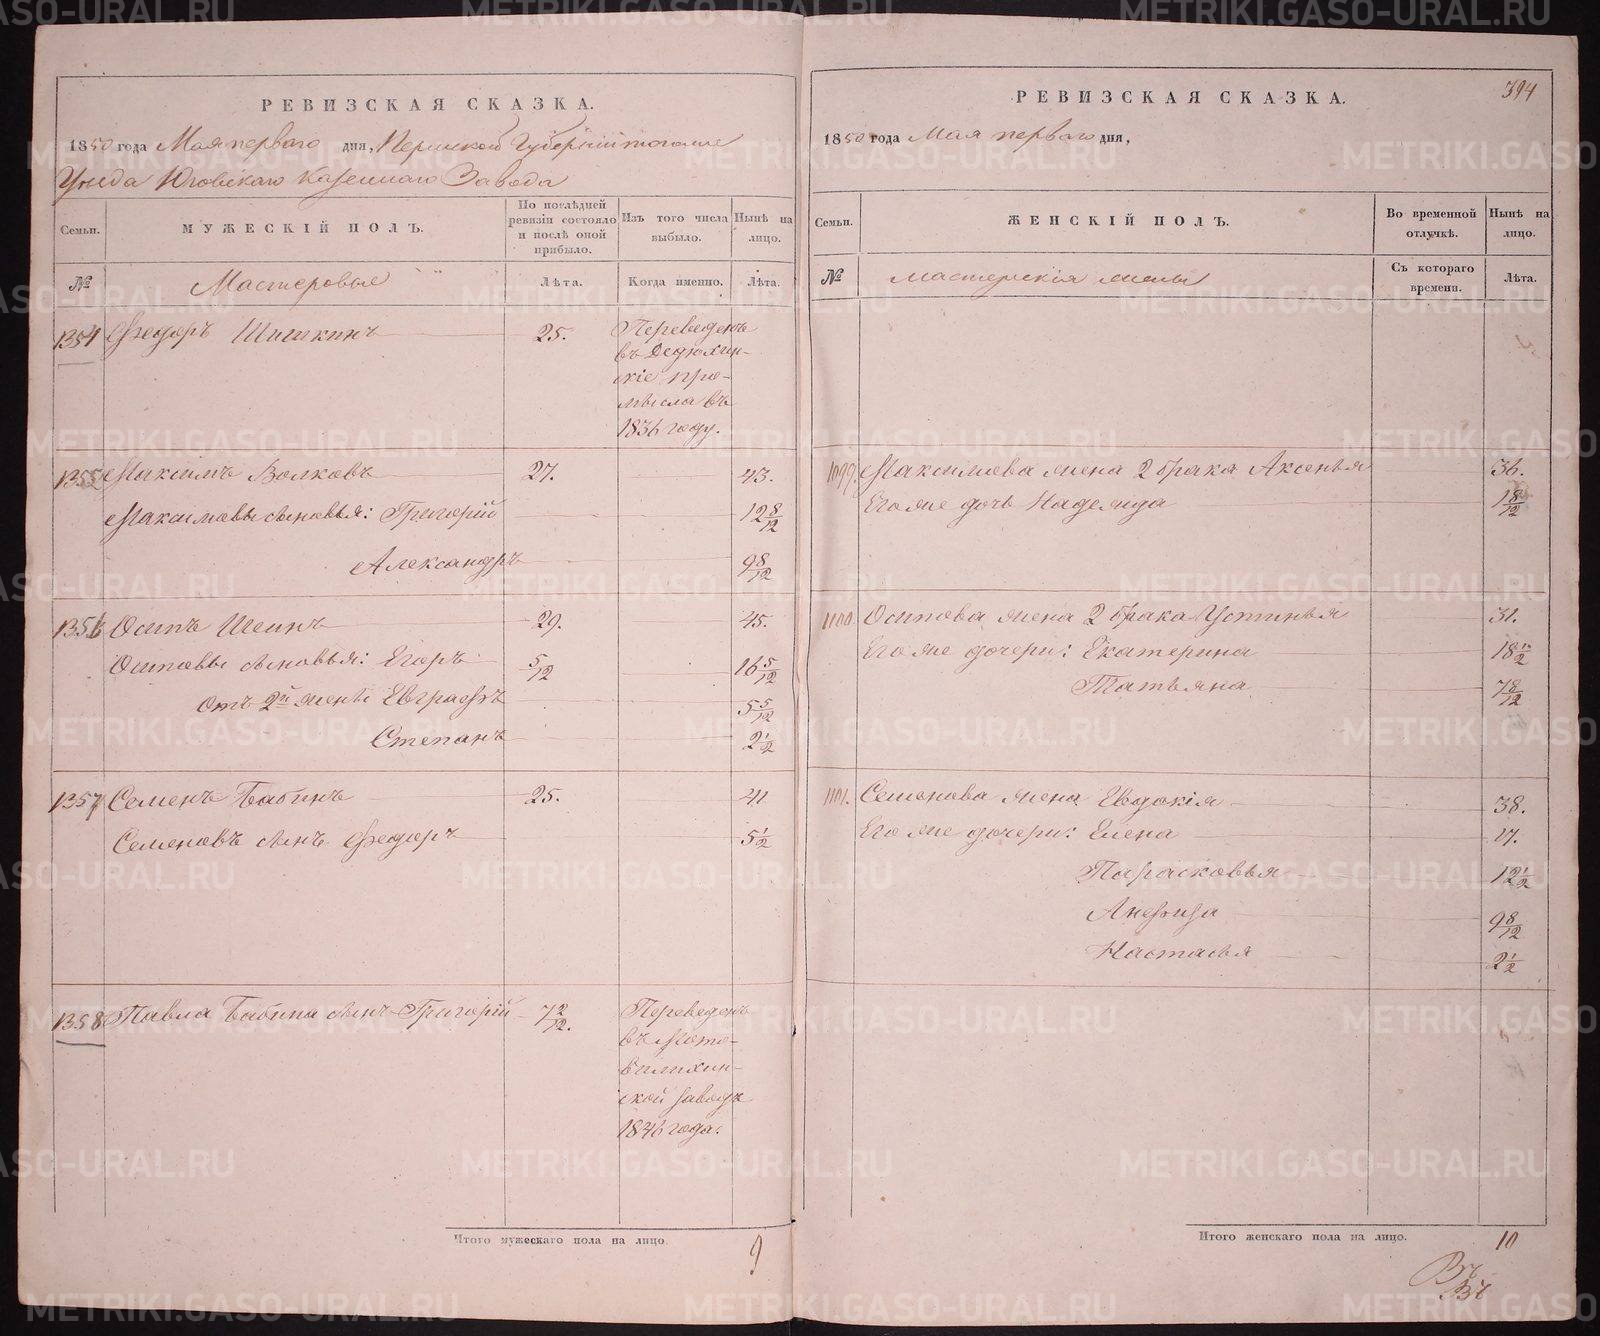 РЕВИЗСКАЯ СКАЗКА.
1850 года Мая перваго дня, Пермской Губерніи тогоже
Уезда Юговскаго Казеннаго Завода
Семьи.
МУЖЕСКІЙ ПОЛЪ.
По послѣдней ревизіи состояло и послѣ оной прибыло.
Изъ того числа выбыло.
Нынѣ на лицо.
№
Мастеровые
Лѣта.
Когда именно.
Лѣта.
1354 Федоръ Шишкинъ 25. Переведенъ
въ Дедюхин-
скіе про-
мысла въ
1836 году.
1355 Максимъ Волковъ 27. 43.
Максимовы сыновья: Григорій 12 8/12
Александръ 9 8/12
1356 Осипъ Шеинъ 29. 45.
Осиповы сыновья: Егоръ 5/12 16 5/12
Отъ 2й жены Евграфъ 5 5/12
Степанъ 2 1/2
1357 Семенъ Бабинъ 25. 41
Семеновъ сынъ Федоръ 5 1/2
1358 Павла Бабина сынъ Григорій 7 2/12. Переведенъ
въ Мото-
вилихин-
ской заводъ
1846 года.
Итого мужескаго пола на лицо. 9
394
РЕВИЗСКАЯ СКАЗКА.
1850 года Мая перваго дня,
Семьи.
ЖЕНСКІЙ ПОЛЪ.
Во временной отлучкѣ.
Нынѣ на лицо.
№
Мастерскія жены
Съ котораго времени.
Лѣта.
1099. Максимова жена 2 брака Аксенья 36.
Его же дочь Надежда 1 8/12
1100. Осипова жена 2 брака Устинья 31.
Его же дочери: Екатерина 18 1/2
Татьяна 7 8/12
1101. Семенова жена Евдокія 38.
Его же дочери: Елена 17.
Парасковья 12 1/2
Анфиза 9 8/12
Настасья 2 1/2
Итого женскаго пола на лицо. 10
METRIKI.GASO-URAL.RU